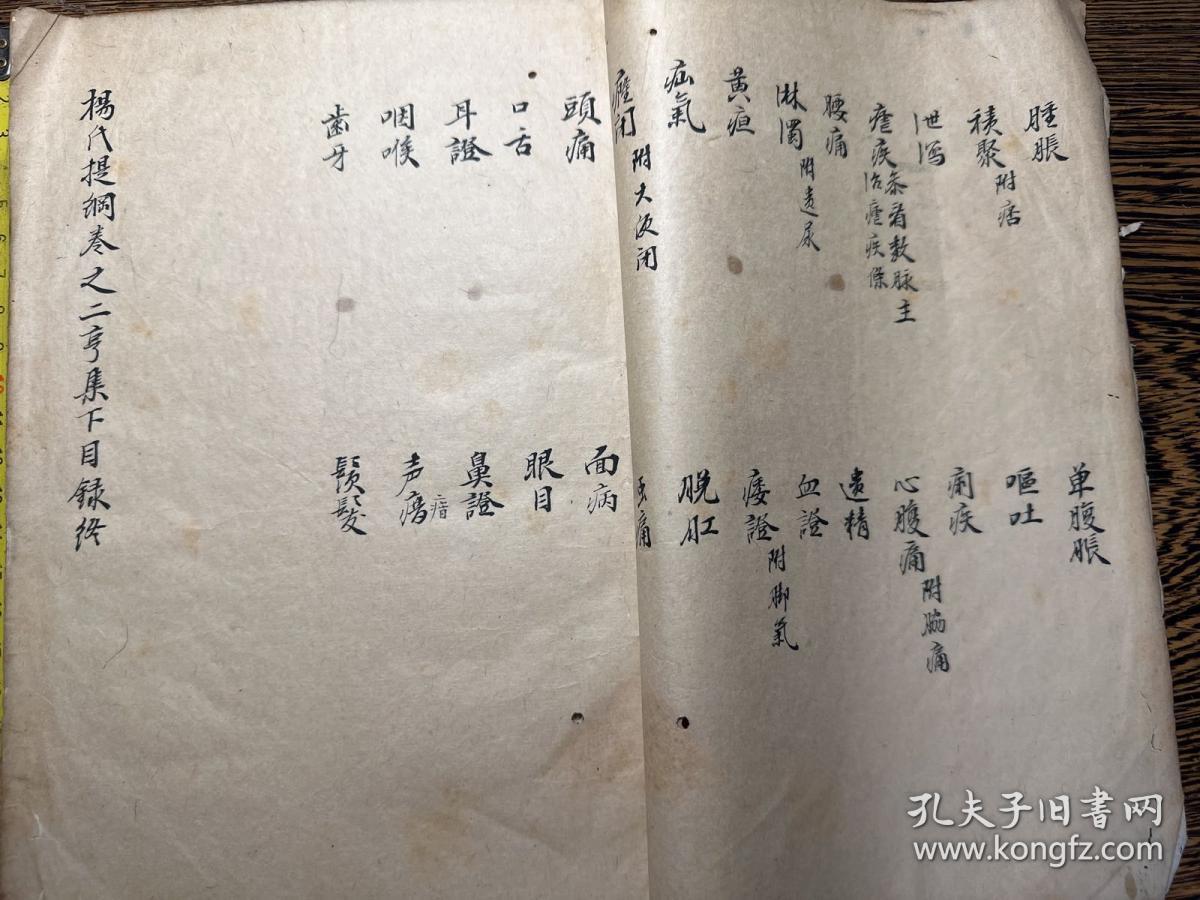 腫脹
单腹脹
積聚 附痞
嘔吐
泄瀉
痢疾
瘧疾 条看数脉主治瘧疾條
心腹痛 附脇痛
腰痛
遺精
淋濁 附遺尿
血證
黄疸
痿證 附脚氣
疝氣
脱肛
癃闭 附大便闭
虫痛
頭痛
面病
口舌
眼目
耳證
鼻證
咽喉
声瘖 瘖
歯牙
鬚髮
楊氏提綱巻之二亨集下目録终
孔夫子旧书网
www.kongfz.com